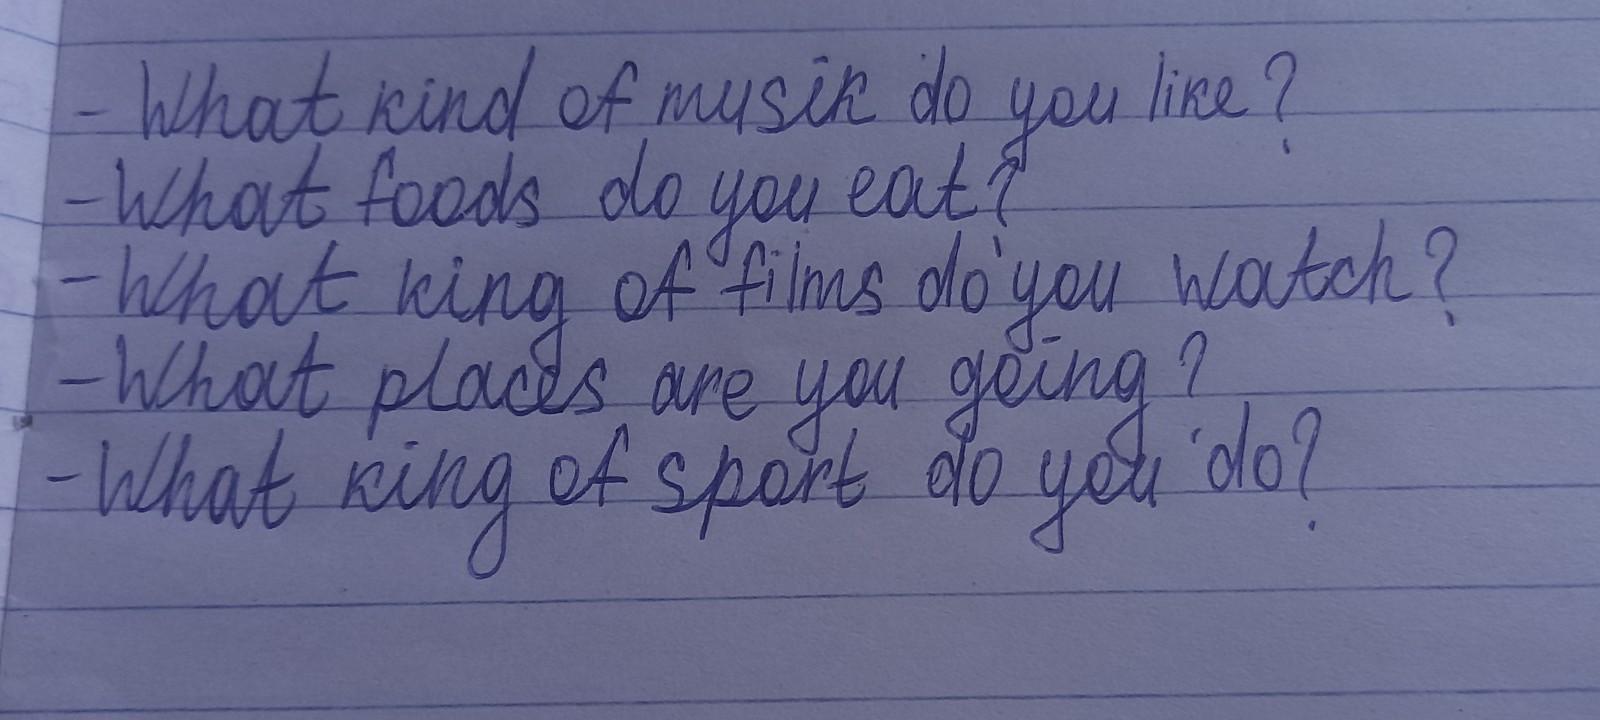 - What kind of mysik do you like?
- What foods do you eat?
- What king of films do you watch?
- What places are you going?
- What king of sport do you do?